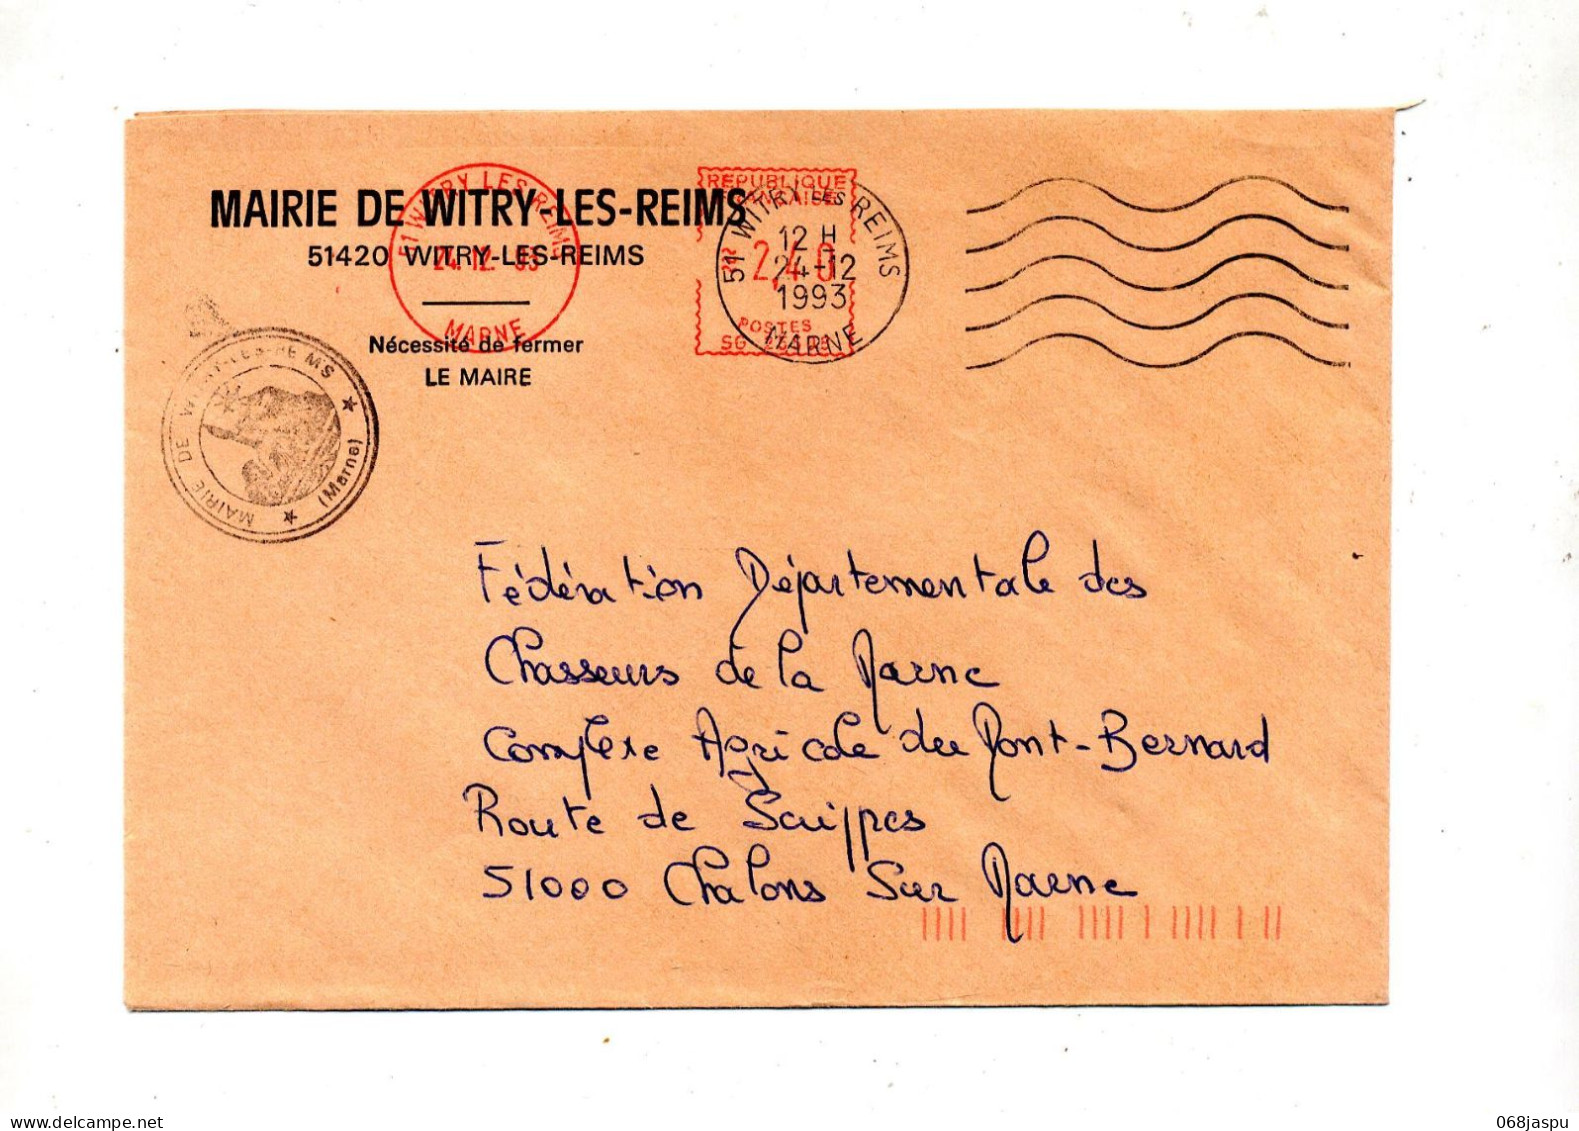 MAIRIE DE WITRY-LES-REIMS
51420 WITRY-LES-REIMS
Nécessité de fermer
LE MAIRE
51 WITRY LES REIMS
24.12. 93
MARNE
REPUBLIQUE
FRANCAISE
2,40
POSTES
SG
51 WITRY LES REIMS
12 H
24-12
1993
MARNE
MAIRIE DE WITRY-LES-REIMS
(Marne)
Fédération Départementale des
Chasseurs de la Marne
Complexe Agricole du Mont-Bernard
Route de Suippes
51000 Chalons Sur Marne
www.delcampe.net
068jaspu